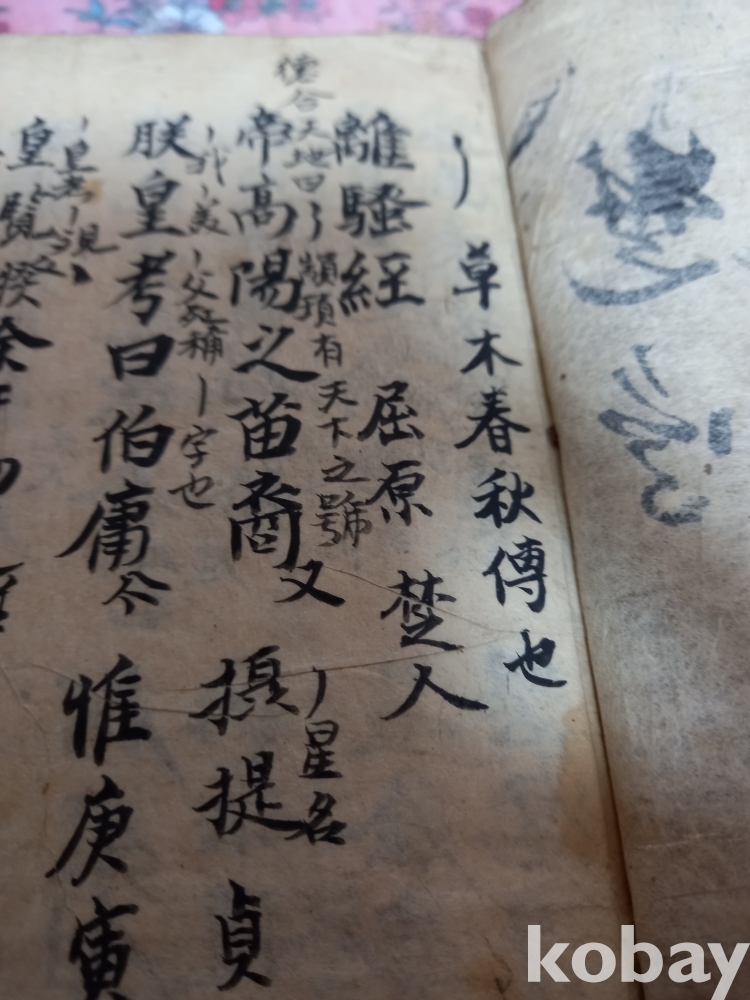 草木春秋傳也
離騷経 屈原 楚人
德合天地曰丨 顓頊有天下之號 丨星名
帝高陽之苗裔又 摂提貞
丨我丨美 丨父死稱 丨字也
朕皇考曰伯庸今 惟庚寅
丨皇考
皇覽揆余
kobay